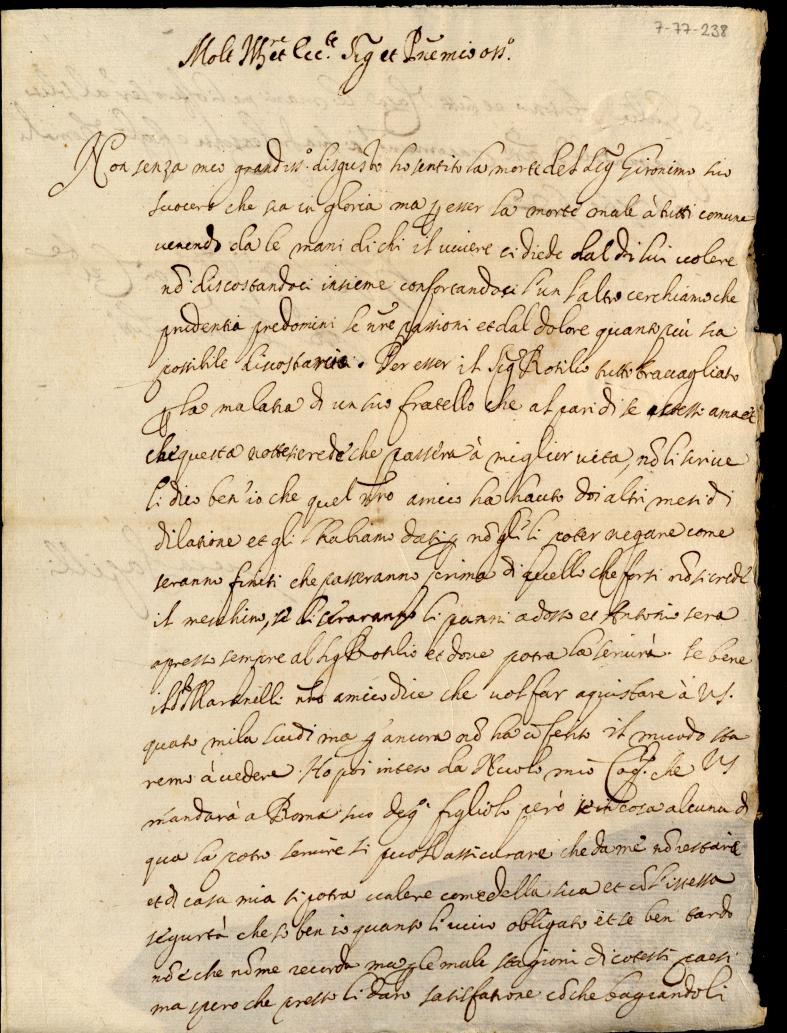 7-77-238
Molt Ill.re et Ecc.te Sig.r et
Non senza mio grandiss.o disgusto ho sentito la morte del Sig.r Gironimo suo
suocero che sia in gloria ma p esser la morte male à tutti comune
venendo da le mani di chi il vivere ci diede dal di lui volere
nõ discostandoci insieme confortandoci l'un l'altro cerchiamo che
prudentia predomini le nr̃e passioni et dal dolore quanto più sia
possibile discostarci. Per esser il Sig.r Rotilio tutto travagliato
p la malatia di un suo fratello che al pari di se stesso ama et
che questa notte si crede che passerà à miglior vita, nõ li scrive
li dico ben'io che quel nr̃o amico ha hauto doi altri mesi di
dilatione et gli l'habiamo dati p nõ gli li poter negare come
seranno finiti che passeranno prima di quello che forsi nõ si crede
il meschino, se li tiraranno li panni adosso et Antonio sera
apresso sempre al Sig.r Rotilio et dove potra la servirà. Se bene
il Martinelli nr̃o amico dice che vol far aquistare à VS.
quatro mila scudi ma p ancora nõ ha cõferito il modo sta
remo à vedere. Ho poi inteso da Nicolo mio che VS
mandarà a Roma suo figliolo però se in cosa alcuna di
qua la potro servire si puol assicurare che da me nõ restarà
et di casa mia si potra valere come della sua et cõ l'istessa
segurtà che so ben io quanto li vivo obligato et se ben tardo
nõ è che nõ me recorda ma p le male stagioni di cotesti paesi
ma spero che presto li daro satisfatione cõ che baciandoli